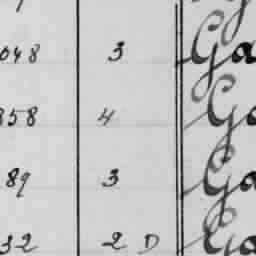 048 3 Ga
858 4 Ga
89 3 Ga
32 2 D Ga